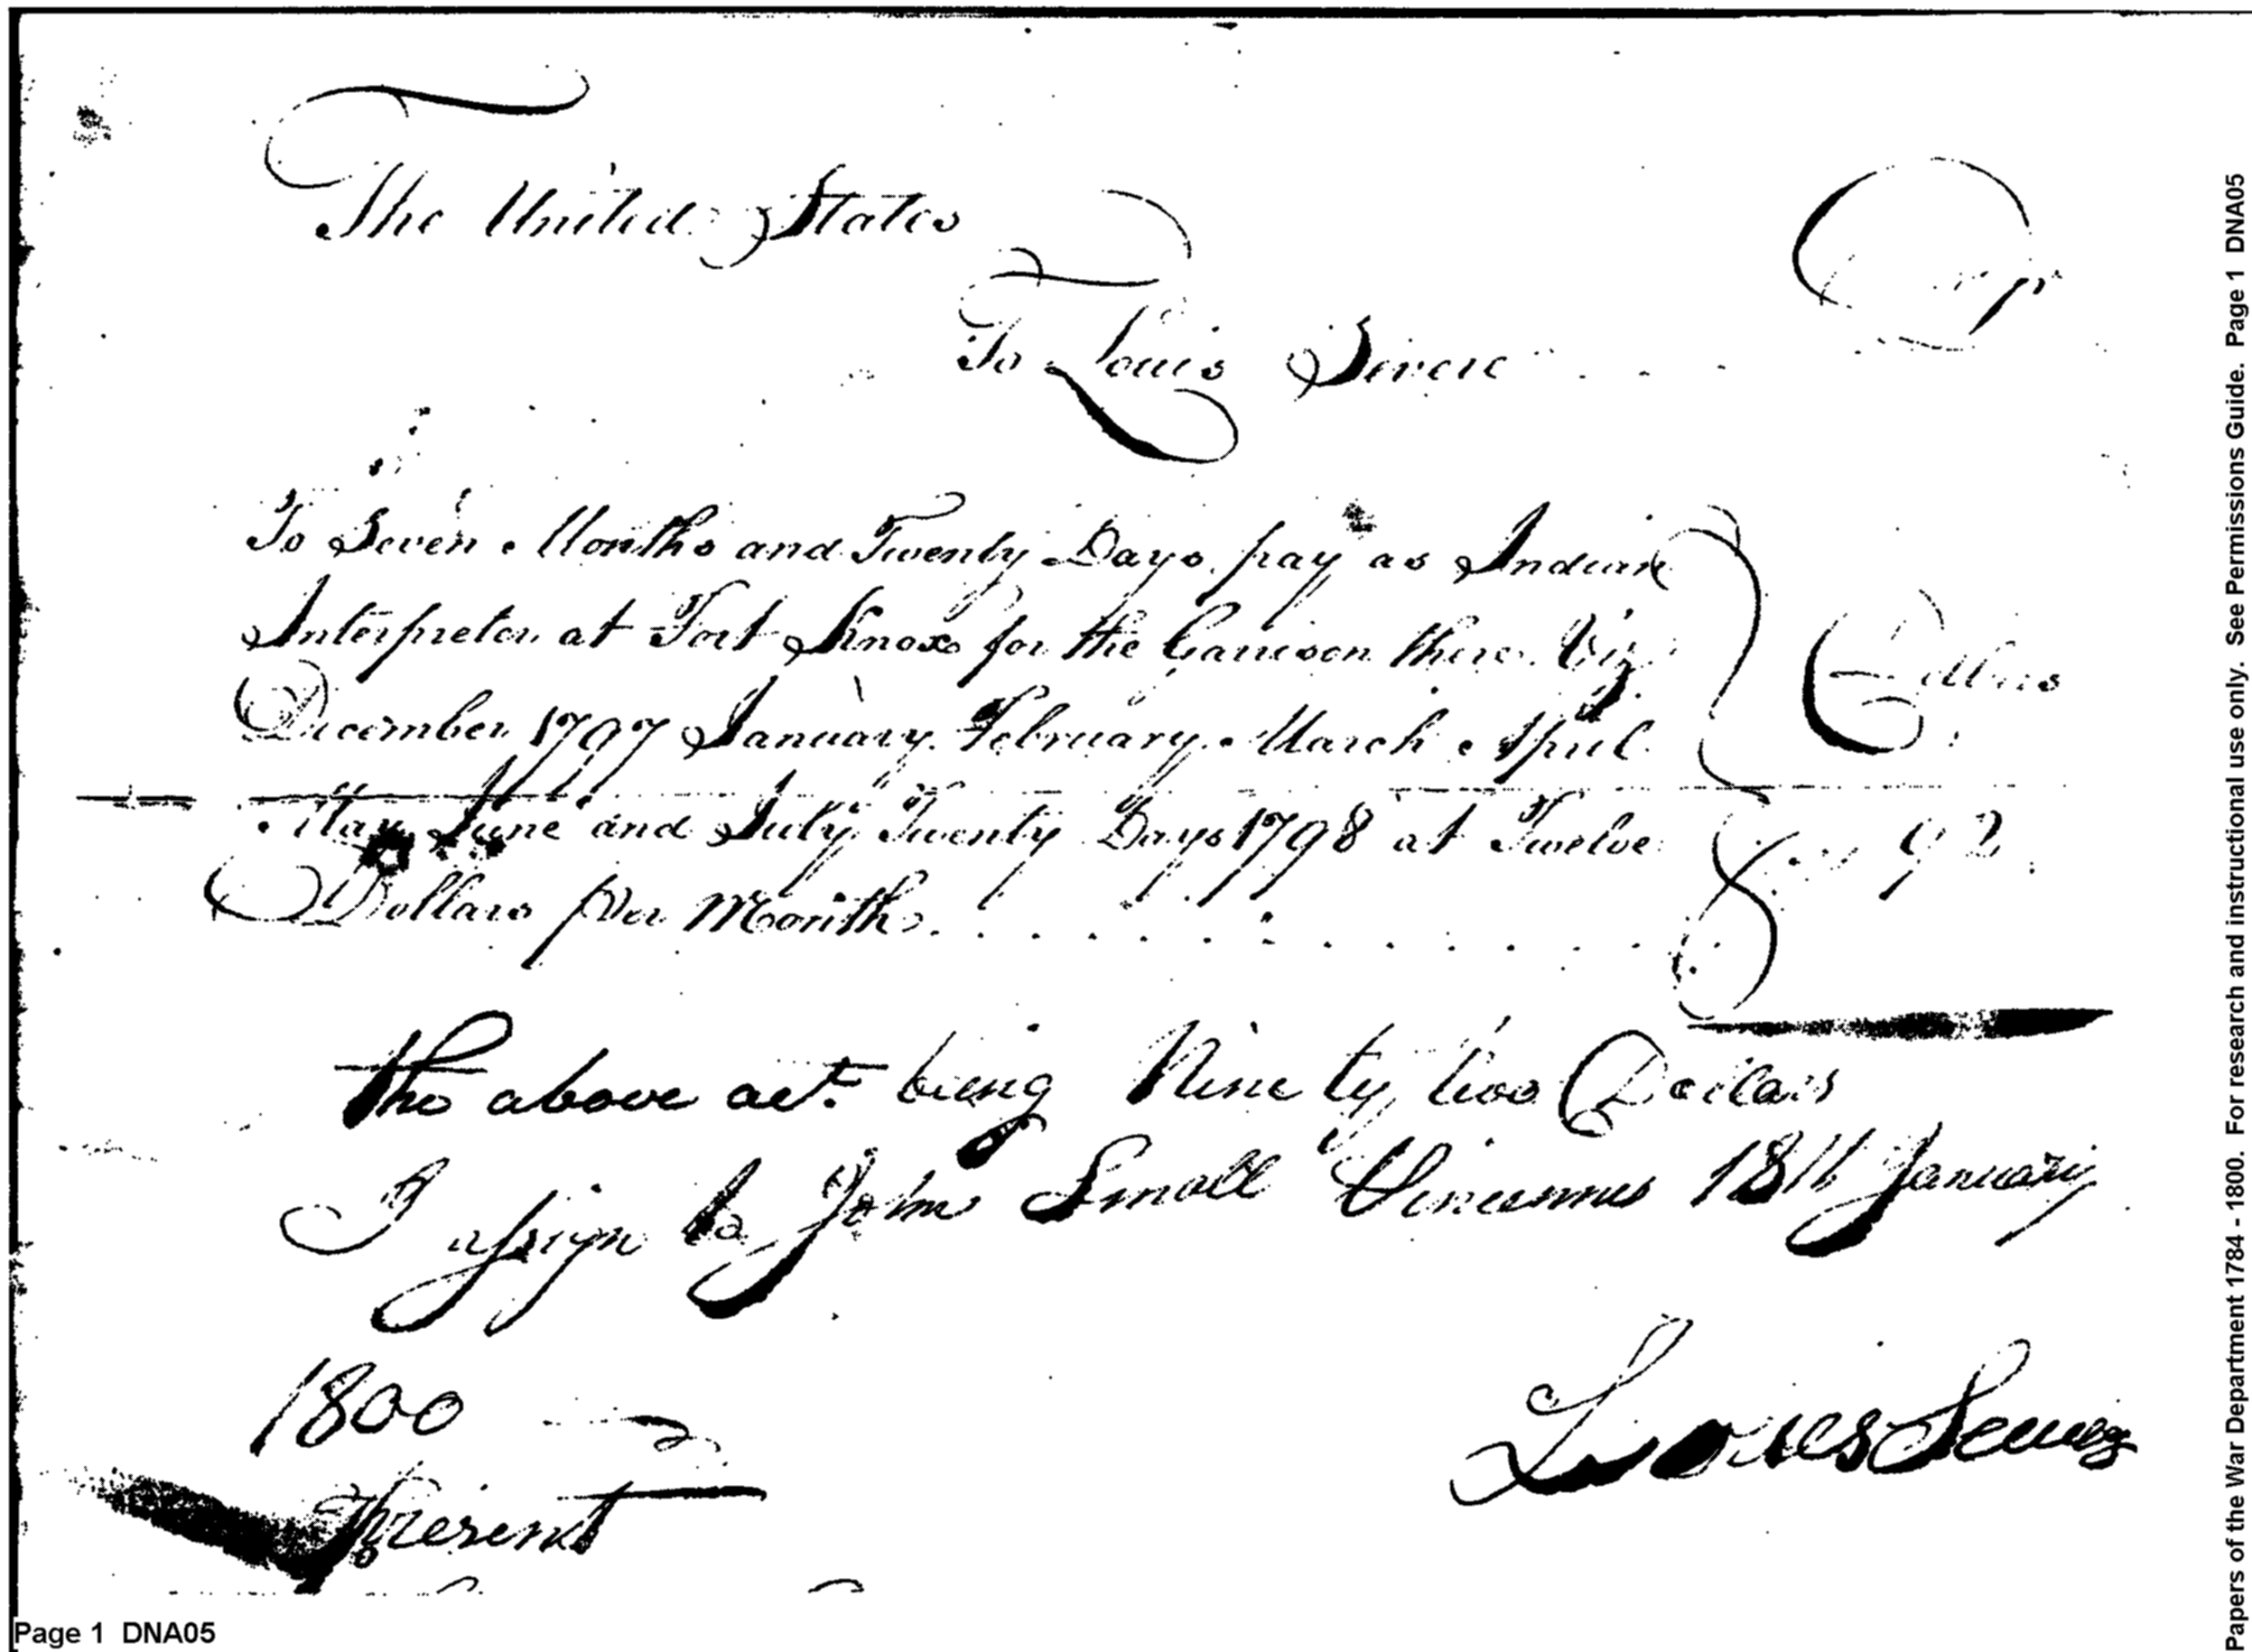 The United States Dr
To Louis Severe
To Seven Months and Twenty Days pay as Indian
Interpreter at Fort Knox for the Garrison there Viz.
December 1797 January February March April
May June and July Twenty Days 1798 at Twelve
Dollars per Month
Dollars
92
the above act. being Ninety two Dollars
I assign to John Small Vincennes 18th January
1800
Louis
Present
Page 1 DNA05
Papers of the War Department 1784 - 1800. For research and instructional use only. See Permissions Guide. Page 1 DNA05